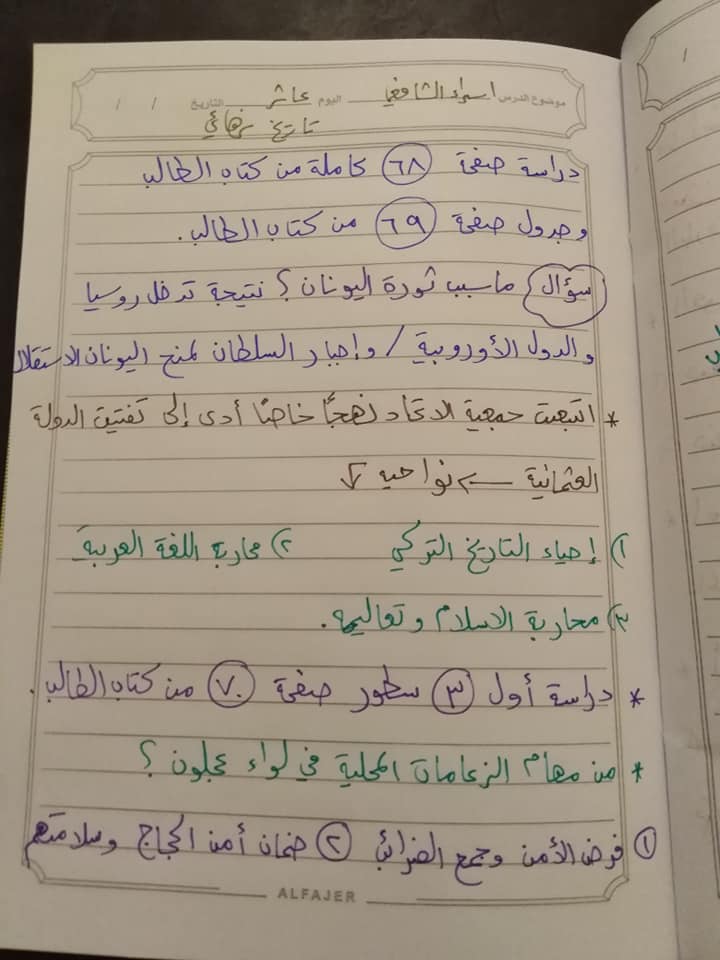 موضوع الدرس اسراء الشافعي اليوم عاشر التاريخ / /
تاريخ نهائي
دراسة صفحة ٦٨ كاملة من كتاب الطالب
وجدول صفحة ٦٩ من كتاب الطالب.
سؤال ماسبب ثورة اليونان؟ نتيجة تدخل روسيا
والدول الأوروبية / وإجبار السلطان لمنح اليونان الاستقلال
* اتبعت جمعية الاتحاد نهجًا خاصًا أدى إلى تفتيت الدولة
العثمانية ← نواحيه ↓
١) إحياء التاريخ التركي ٢) محاربة اللغة العربية
٣) محاربة الاسلام وتعاليمه.
* دراسة أول ٣ سطور صفحة ٧٠ من كتاب الطالب.
* من مهام الزعامات المحلية في لواء عجلون؟
١ فرض الأمن وجمع الضرائب ٢ ضمان أمن الحجاج وسلامتهم
ALFAJER